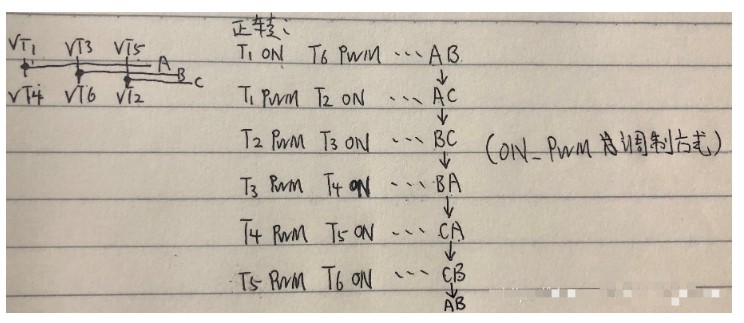 正转:
VT1 VT3 VT5
A
B
C
VT4 VT6 VT2
T1 ON T6 PWM ... AB
↓
T1 PWM T2 ON ... AC
↓
T2 PWM T3 ON ... BC (ON_PWM 为调制方式)
↓
T3 PWM T4 ON ... BA
↓
T4 PWM T5 ON ... CA
↓
T5 PWM T6 ON ... CB
↓
AB